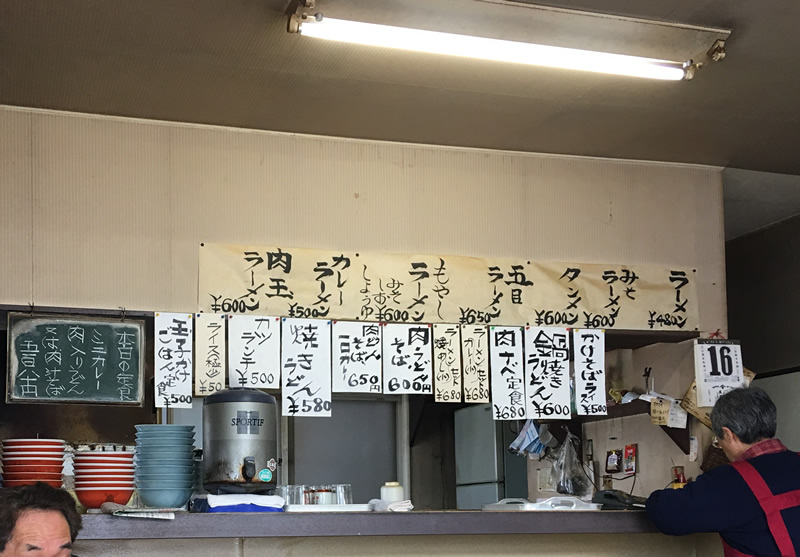 ラーメン
¥480
みそ
ラーメン
¥600
タンメン
¥600
五目
ラーメン
¥650
もやし
ラーメン
みそ
しお
しょうゆ
¥600
カレー
ラーメン
¥500
肉玉
ラーメン
¥600
かけそばライス
¥500
鍋焼き
うどん
¥600
肉なべ定食
¥680
ラーメンセット
¥680
ラーメンセット
¥680
肉うどん
そば
600円
肉どん
650円
焼きうどん
¥580
カツ
ランチ
¥500
ライス極少
¥50
玉子カレー
ごはん定食
¥500
本日の定食
ミニカレー
肉入りうどん
又は肉そば
五百八十円
16
SPORTIF